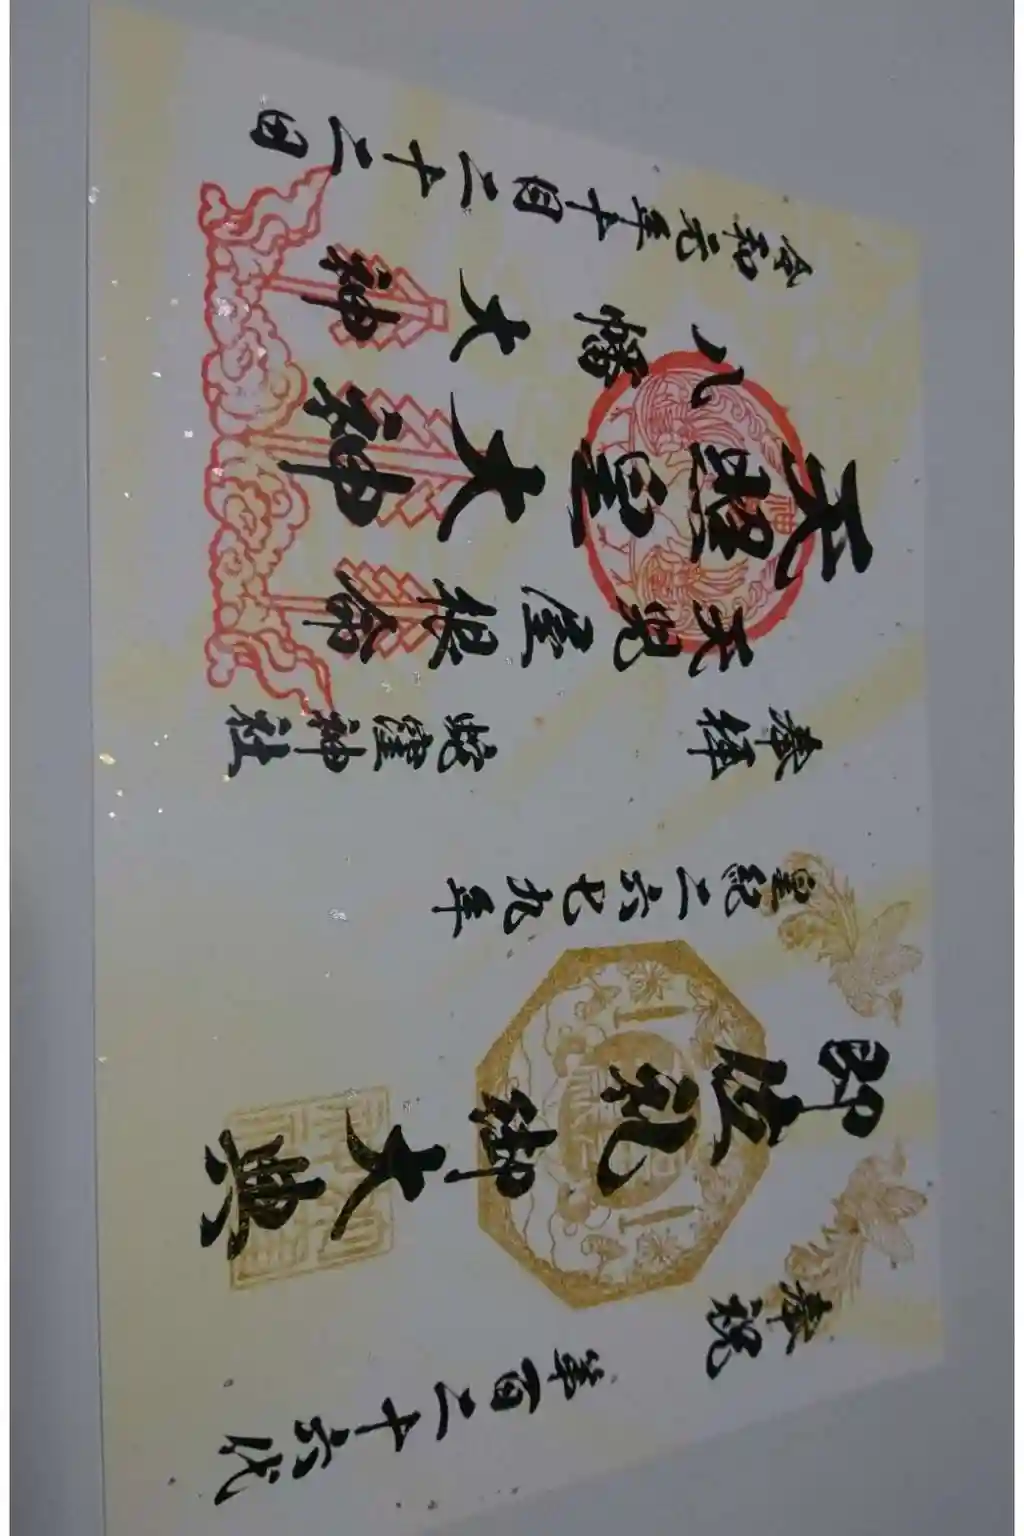 奉祝 第百二十六代
即位礼御大典
皇紀二六七九年
奉拝 蛇窪神社
天児屋根命
天照皇大神
八幡大神
令和元年十月二十二日